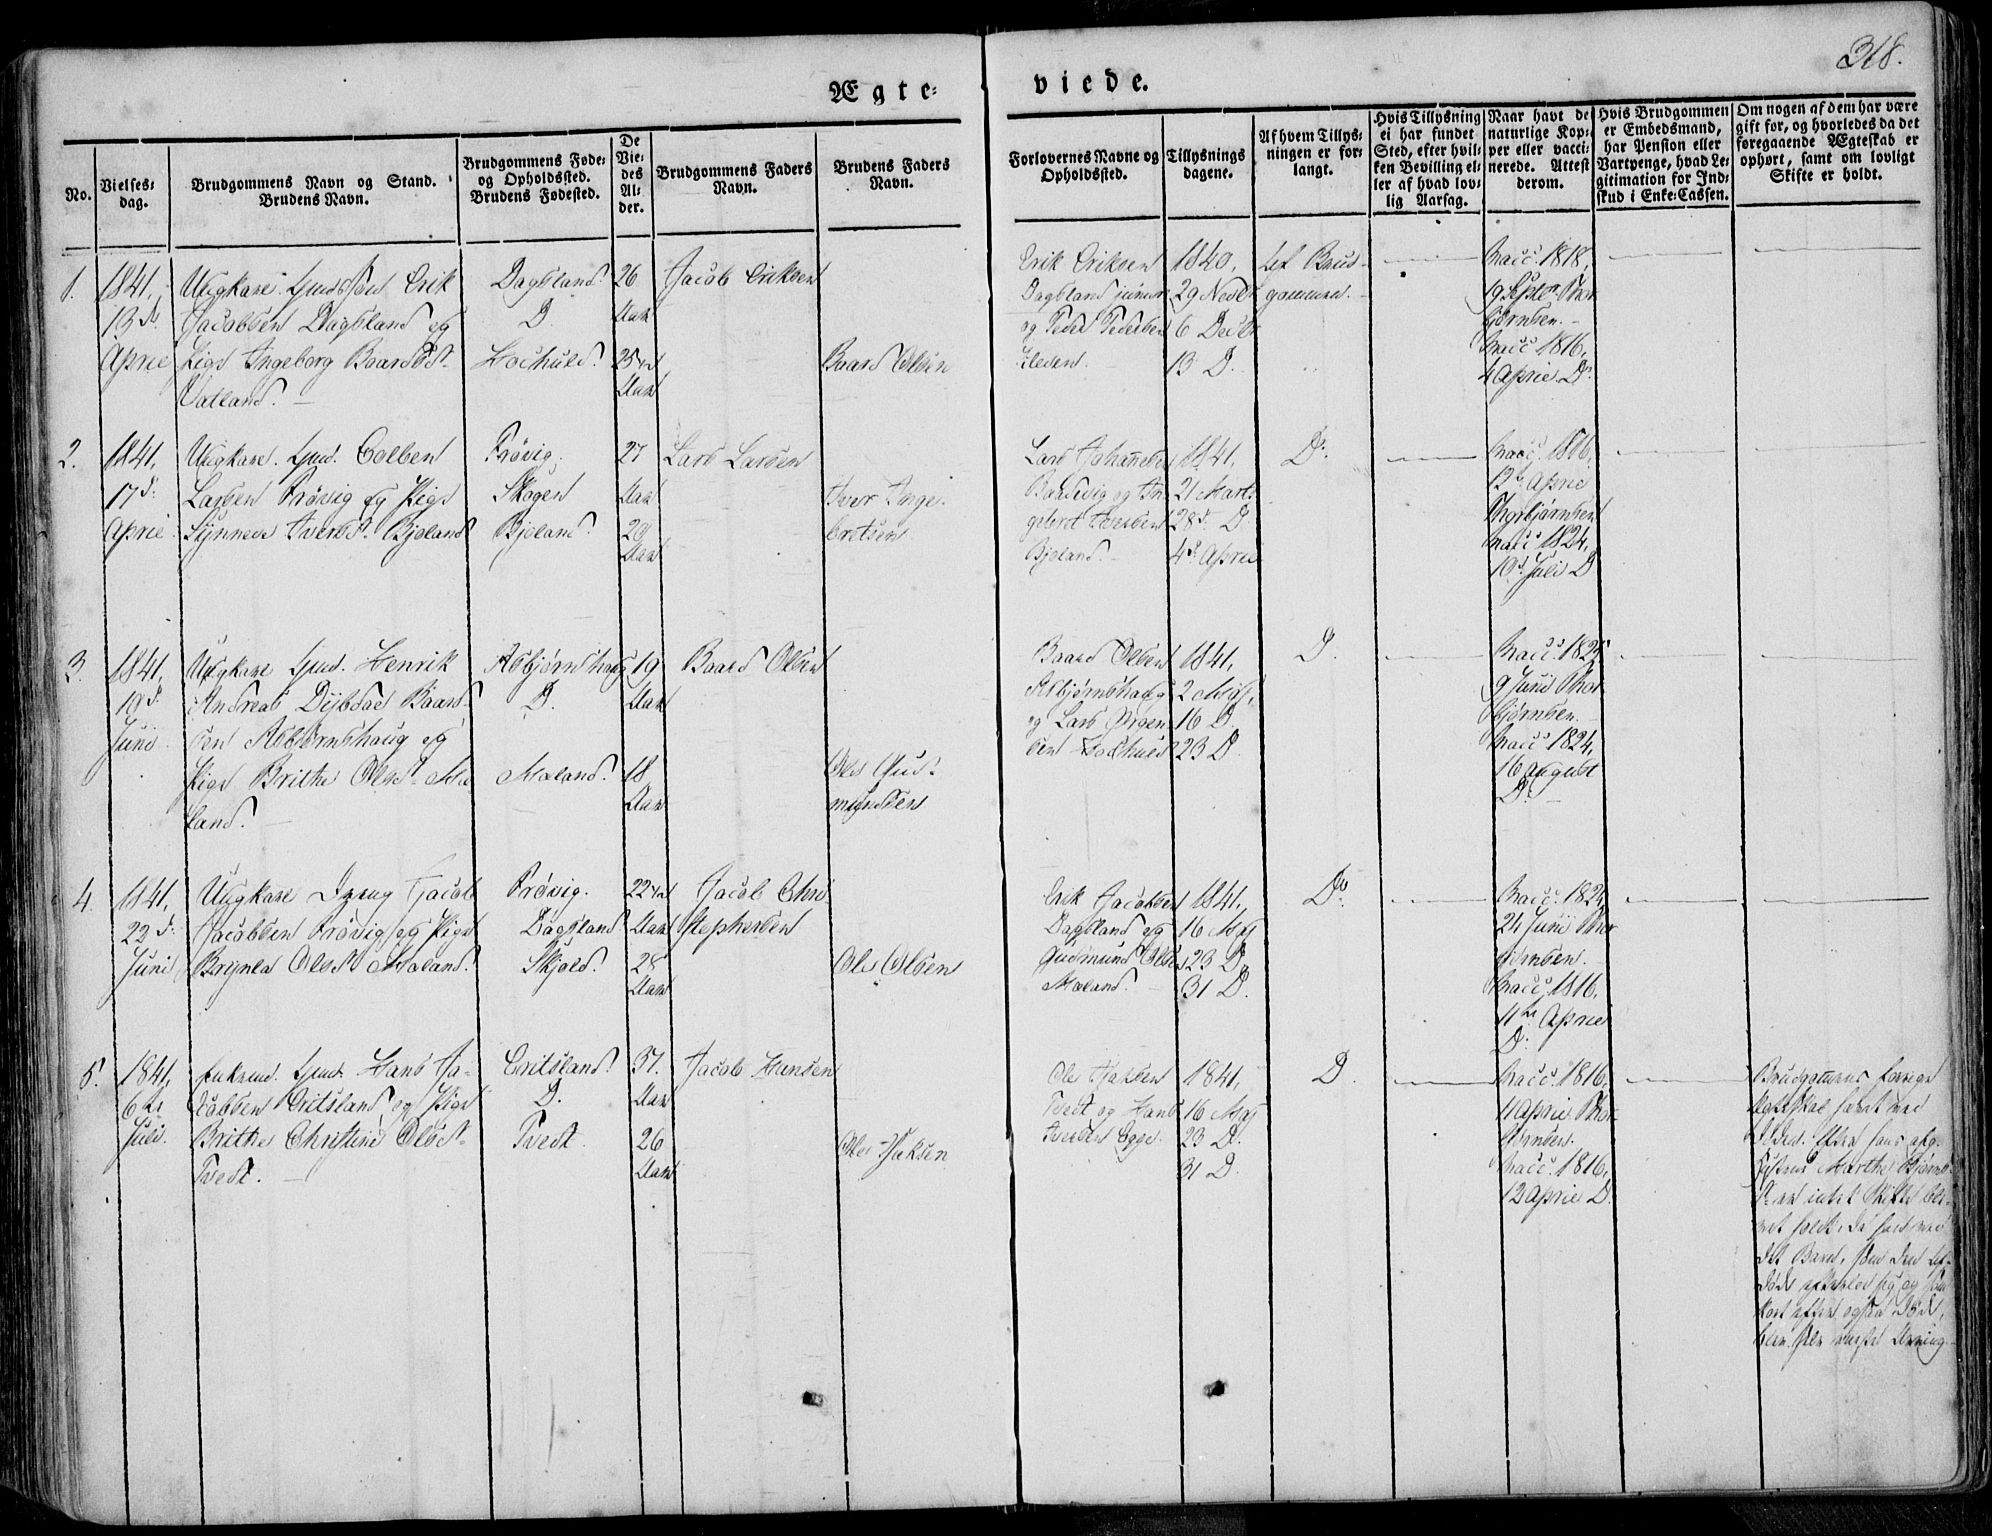 318.
Ægte-
viede.
No.
Vielses-
dag.
Brudgommens Navn og Stand.
Brudens Navn.
Brudgommens Føde-
og Opholdssted.
Brudens Fødested.
De
Vie-
des
Al-
der.
Brudgommens Faders
Navn.
Brudens Faders
Navn.
Forlovernes Navne og
Opholdssted.
Tillysnings
dagene.
Af hvem Tillys-
ningen er for-
langt.
Hvis Tillysning
ei har fundet
Sted, efter hvil-
ken Bevilling el-
ler af hvad lov-
lig Aarsag.
Naar havt de
naturlige Kop-
per eller vacci-
nerede. Attest
derom.
Hvis Brudgommen
er Embedsmand,
har Pension eller
Vartpenge, hvad Le-
gitimation for Ind-
skud i Enke-Cassen.
Om nogen af dem har være
gift for, og hvorledes da det
foregaaende Ægteskab er
ophørt, samt om lovligt
Skifte er holdt.
1.
1841,
13de
April
Ungkarl Erik
Jacobsen Dagsland og
Pige Ingeborg Baardsd.
Vatland.
Dagsland
D.
26
Aar
25
Aar
Jacob Eriksen
Baard Olsen
Erik Eriksen
Dagsland junior
og Peder Pedersen
1840,
29 Novbr
6 Decbr
13 D.
af Brud-
gommen.
Vacc. 1818,
19 Septbr Thor
bjørnsen.
Vacc. 1816,
4 April D.
2.
1841,
17d.
April
Ungkarl. Colben
Larsen Frøvig og Pige
Iversd. Bjeland
Frøvig.
Skogen
Bjeland.
27
Aar
20
Aar
Lars Larsen
Iver Inge-
bretsen
Lars Johannesen
og In-
gebret Iversen
Bjeland.
1841,
21 Marts
28d. D
4d. April
Do.
Vacc. 1816,
12te April
Thorbjørnsen
Vacc. 1824,
10d. Juli D
3.
1841,
19d.
Juni
Ungkarl Henrik
Andreas Dybdal Baard-
sen Asbjørnshaug og
Pige Brithe Olsd. Mæ-
land.
Asbjørnshaug
D.
Mæland.
19
Aar
18
Aar
Baard Olsen
Ole Gud-
mundsen
Baard Olsen
Asbjørnshaug
og Lars Ørgen-
sen
1841,
2 Maj,
16 D.
23 D.
D.
Vacc. 1825,
9 Juni Thor
bjørnsen.
Vacc. 1824,
16 August
D.
4.
1841,
23d.
Juni
Ungkarl Jacob
Jacobsen Frøvig og Pige
Brynla Olsd. Mæland.
Frøvig.
Dagsland
Skjold.
22
Aar
28
Aar
Jacob Chri-
stophersen
Ole Olsen
Erik Jacobsen
Dagsland og
Gudmund Olsen
Mæland.
1841,
16 Maj
23 D.
31 D.
Do.
Vacc. 1824,
24 Juni Thor
bjørnsen.
Vacc. 1816,
11te April
D.
5.
1841,
6te
Juli.
Enkemd. Hans Ja-
cobsen Eritsland og Pige
Brithe Christine Olsd.
Tvedt.
Eritsland
D.
Tvedt.
37.
Aar
26
Aar
Jacob Hansen
Ole
Ole
Tvedt og Hans
Iversen Egge.
1841,
16 Maj
23 D.
31 D.
D.
Vacc. 1816,
11 April Thor
bjørnsen.
Vacc. 1816,
12 April D.
Brudgommens forrige
Ægteskab hævet ved
Døden. Efter hans afg.
Hustru Marthe Bjørns-
d. er intet Skifte ble-
vet holdt, da han med
det Barn, som den af-
døde efterlod sig og som
kort efter ogsaa døde,
blev selv næste Arving.